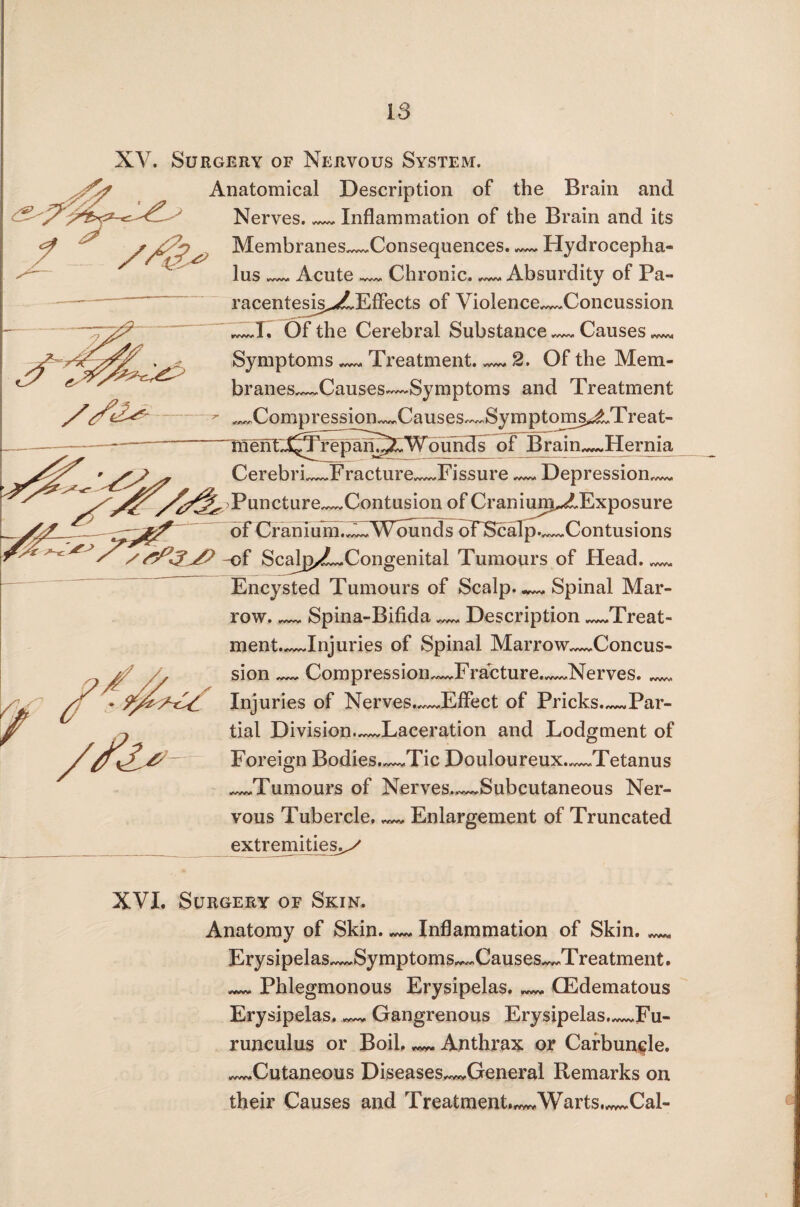 13
XV. SURGERY OF NERVOUS SYSTEM.
Anatomical Description of the Brain and
Nerves. ~~ Inflammation of the Brain and its
Membranes~~Consequences. ~~ Hydrocepha-
lus ~~ Acute ~~ Chronic. ~~ Absurdity of Pa-
racentesis~~Effects of Violence~~Concussion
~~1. Of the Cerebral Substance ~~ Causes ~~
Symptoms ~~ Treatment. ~~ 2. Of the Mem-
branes~~Causes~~Symptoms and Treatment
~~Compression~~Causes~~Symptoms~~Treat-
ment.~~Trepan.~~Wounds of Brain~~Hernia
Cerebri~~Fracture~~Fissure ~~ Depression~~
Puncture~~Contusion of Cranium~~Exposure
of Cranium.~~Wounds of Scalp.~~Contusions
of Scalp~~Congenital Tumours of Head. ~~
Encysted Tumours of Scalp. ~~ Spinal Mar-
row. ~~ Spina-Bifida ~~ Description ~~Treat-
ment.~~Injuries of Spinal Marrow~~Concus-
sion ~~ Compression~~Fracture.~~Nerves. ~~
Injuries of Nerves.~~Effect of Pricks.~~Par-
tial Division.~~Laceration and Lodgment of
Foreign Bodies.~~Tic Douloureux.~~Tetanus
~~Tumours of Nerves.~~Subcutaneous Ner-
vous Tubercle. ~~ Enlargement of Truncated
extremities.
XVI. SURGERY OF SKIN.
Anatomy of Skin. ~~ Inflammation of Skin. ~~
Erysipelas~~Symptoms~~Causes~~Treatment.
~~ Phlegmonous Erysipelas. ~~ Œdematous
Erysipelas. ~~ Gangrenous Erysipelas.~~Fu-
runculus or Boil. ~~ Anthrax or Carbuncle.
~~Cutaneous Diseases~~General Remarks on
their Causes and Treatment.~~Warts.~~Cal-